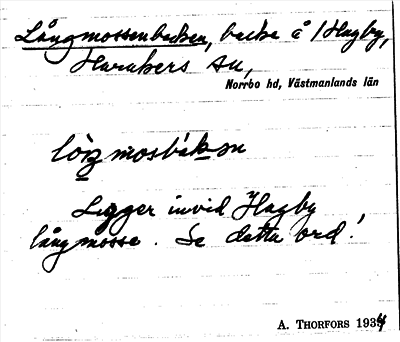 Långmossenbacken, backe å 1 Hagby,
Harakers sn,
Norrbo hd, Västmanlands län
Ligger invid Hagby
långmosse. Se detta ord!
A. THORFORS 1934